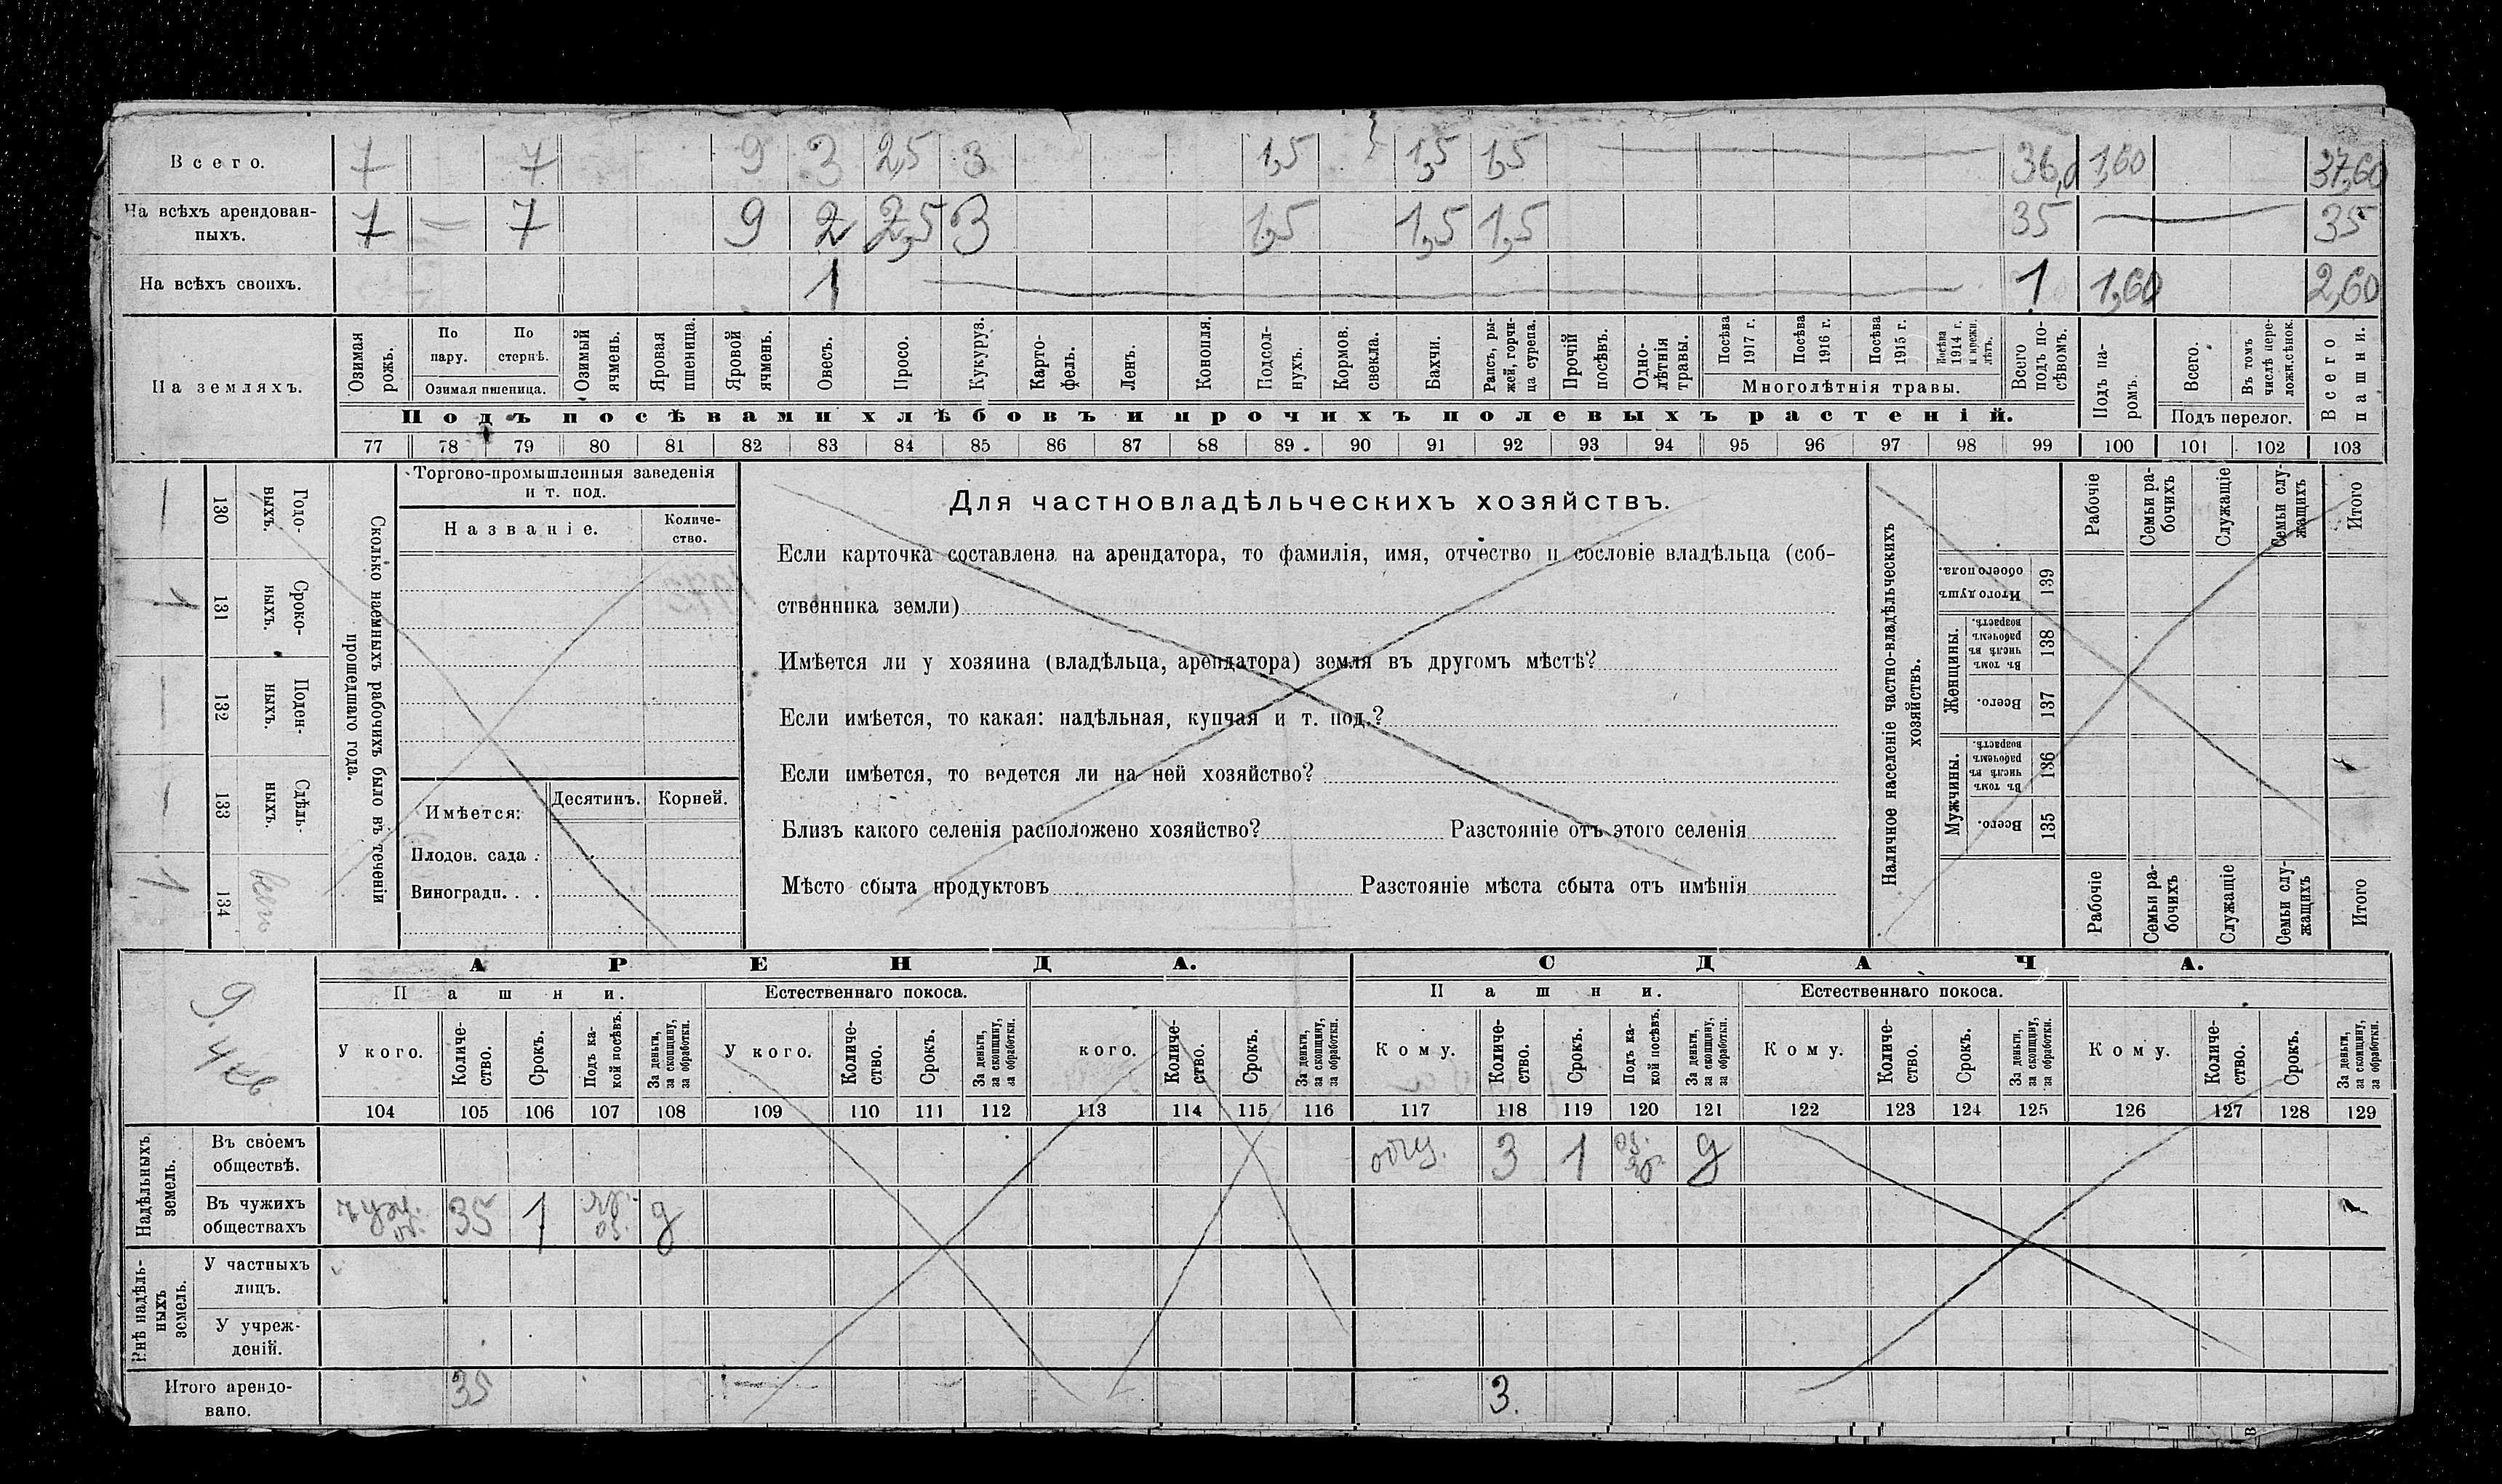 Всего. 7 7 9 3 2,5 3 1,5 1,5 1,5 36,0 1,60 37,60
На всѣхъ арендован-
ныхъ. 7 — 7 9 2 2,5 3 1,5 1,5 1,5 35 35
На всѣхъ своихъ. 1 1 1,60 2,60
На земляхъ.
Озимая рожь.
По пару.
По стернѣ.
Озимая пшеница.
Озимый ячмень.
Яровая пшеница.
Яровой ячмень.
Овесъ.
Просо.
Кукуруз.
Карто-
фель.
Ленъ.
Конопля.
Подсол-
нухъ.
Кормов. свекла.
Бахчи.
Рапсъ, ры-
жей, горчи-
ца сурепа.
Прочій посѣвъ.
Одно-
лѣтнія травы.
Посѣва 1917 г.
Посѣва 1916 г.
Посѣва 1915 г.
Посѣва 1914 г. и прежн. лѣтъ.
Многолѣтнія травы.
Всего подъ по-
сѣвомъ.
Подъ па-
ромъ.
Всего.
Въ томъ числѣ пере-
ложн. сѣнок.
Подъ перелог.
Всего пашни.
Подъ посѣвами хлѣбовъ и прочихъ полевыхъ растеній.
77 78 79 80 81 82 83 84 85 86 87 88 89 90 91 92 93 94 95 96 97 98 99 100 101 102 103
— 130 Годо-
выхъ.
1 131 Сроко-
ныхъ.
— 132 Поден-
ныхъ.
— 133 Сдѣль-
ныхъ.
1 134 всего
Сколько наемныхъ рабочихъ было въ теченіи
прошедшаго года.
Торгово-промышленныя заведенія
и т. под.
Названіе.
Количе-
ство.
Имѣется: Десятинъ. Корней.
Плодов. сада .
Виноградн. . .
Для частновладѣльческихъ хозяйствъ.
Если карточка составлена на арендатора, то фамилія, имя, отчество и сословіе владѣльца (соб-
ственника земли)
Имѣется ли у хозяина (владѣльца, арендатора) земля въ другомъ мѣстѣ?
Если имѣется, то какая: надѣльная, купчая и т. под.?
Если имѣется, то ведется ли на ней хозяйство?
Близъ какого селенія расположено хозяйство? Разстояніе отъ этого селенія
Мѣсто сбыта продуктовъ Разстояніе мѣста сбыта отъ имѣнія
Наличное населеніе частно-владѣльческихъ
хозяйствъ.
Рабочіе
Семьи ра-
бочихъ
Служащіе
Семьи слу-
жащихъ
Итого
Итого душъ обоего пола. 139
Женщины.
Въ томъ числѣ въ рабочемъ возрастѣ. 138
Всего. 137
Мужчины.
Въ томъ числѣ въ рабочемъ возрастѣ. 136
Всего. 135
Рабочіе
Семьи ра-
бочихъ
Служащіе
Семьи слу-
жащихъ
Итого
АРЕНДА. СДАЧА.
Пашни. Естественнаго покоса. Пашни. Естественнаго покоса.
У кого.
Количе-
ство.
Срокъ.
Подъ ка-
кой посѣвъ.
За деньги,
за скопщину,
за обработки.
У кого.
Количе-
ство.
Срокъ.
За деньги,
за скопщину,
за обработки.
кого.
Количе-
ство.
Срокъ.
За деньги,
за скопщину,
за обработки.
Кому.
Количе-
ство.
Срокъ.
Подъ ка-
кой посѣвъ.
За деньги,
за скопщину,
за обработки.
Кому.
Количе-
ство.
Срокъ.
За деньги,
за скопщину,
за обработки.
Кому.
Количе-
ство.
Срокъ.
За деньги,
за скопщину,
за обработки.
104 105 106 107 108 109 110 111 112 113 114 115 116 117 118 119 120 121 122 123 124 125 126 127 128 129
Надѣльныхъ
земель.
Въ своемъ
обществѣ. 3 1 оз. д
Въ чужихъ
обществахъ чуж. об. 35 1 яр. оз. д
Внѣ надѣль-
ныхъ
земель.
У частныхъ
лицъ.
У учреж-
деній.
Итого арендо-
вано. 35 3.